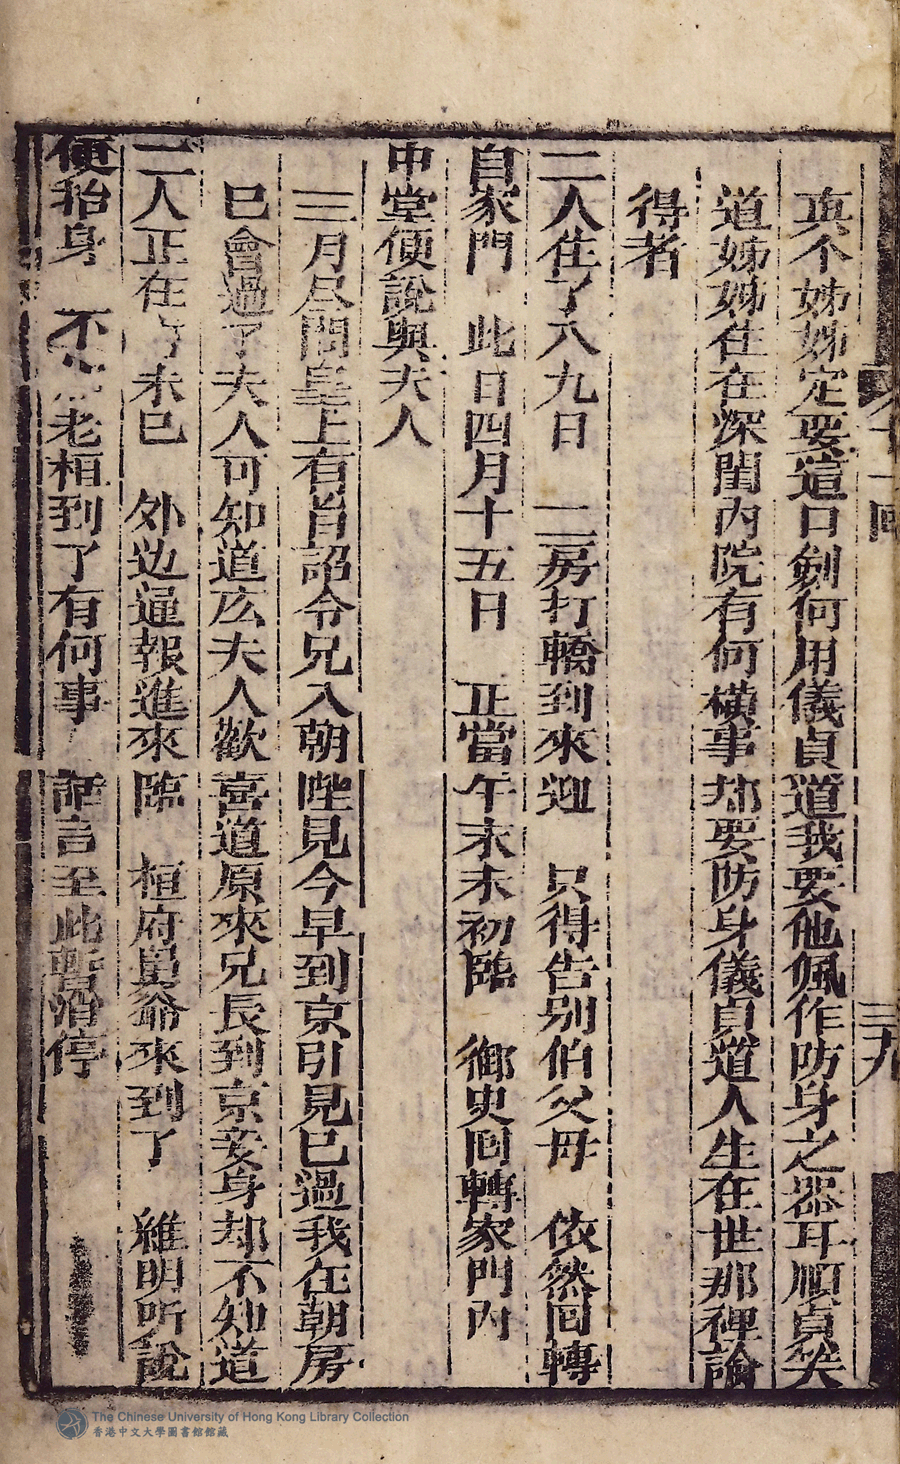 真个姊姊定要這口劍何用儀貞道我要他佩作防身之器耳順貞笑
道姊姊住在深閨內院有何橫事却要防身儀貞道人生在世那裡論
得者
二人住了八九日 二房打轎到來迎 只得告别伯父母 依然囬轉
自家門 此日四月十五日 正當午末未初臨 御史囬轉家門內
中堂便說與夫人
三月尽間皇上有旨詔令兄入朝陛見今早到京引見已過我在朝房
已會過了夫人可知道庅夫人歡喜道原來兄長到京妾身却不知道
二人正在 未已 外边逓報進來臨 桓府爺來到了 維明听說
便抬身 不 老相到了有何事 話言至此暫消停
十一囬
三九
The Chinese University of Hong Kong Library Collection
香港中文大學圖書館館藏